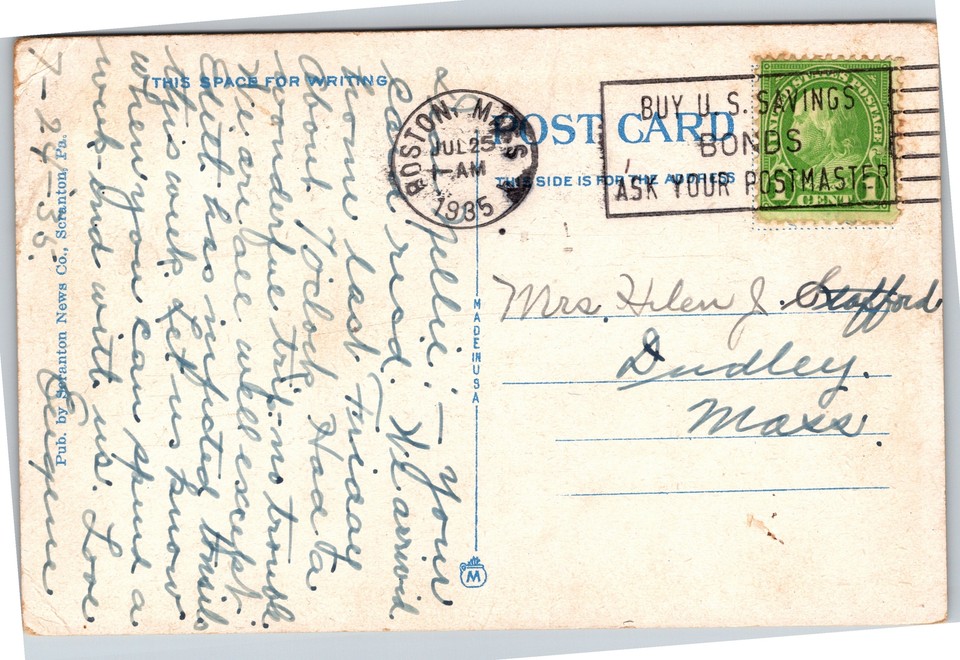 THIS SPACE FOR WRITING
7-24-35.
Nellie:- Your
Card rec'd. We arrived
home last Friday
about 7 o'clock. Had a
wonderful trip. no trouble
We are all well except
Edith has infected tonsils
this week. Let us know
when you can spend a
week-end with us. Love
Eugene
Pub. by Scranton News Co., Scranton, Pa.
MADE IN USA
M
BOSTON, MASS.
JUL 25
7 - AM
1935
BUY U. S. SAVINGS
BONDS
ASK YOUR POSTMASTER
POST CARD
THIS SIDE IS FOR THE ADDRESS
U.S. POSTAGE
1 CENT 1
Mrs. Helen J. Stafford
Dudley.
Mass.